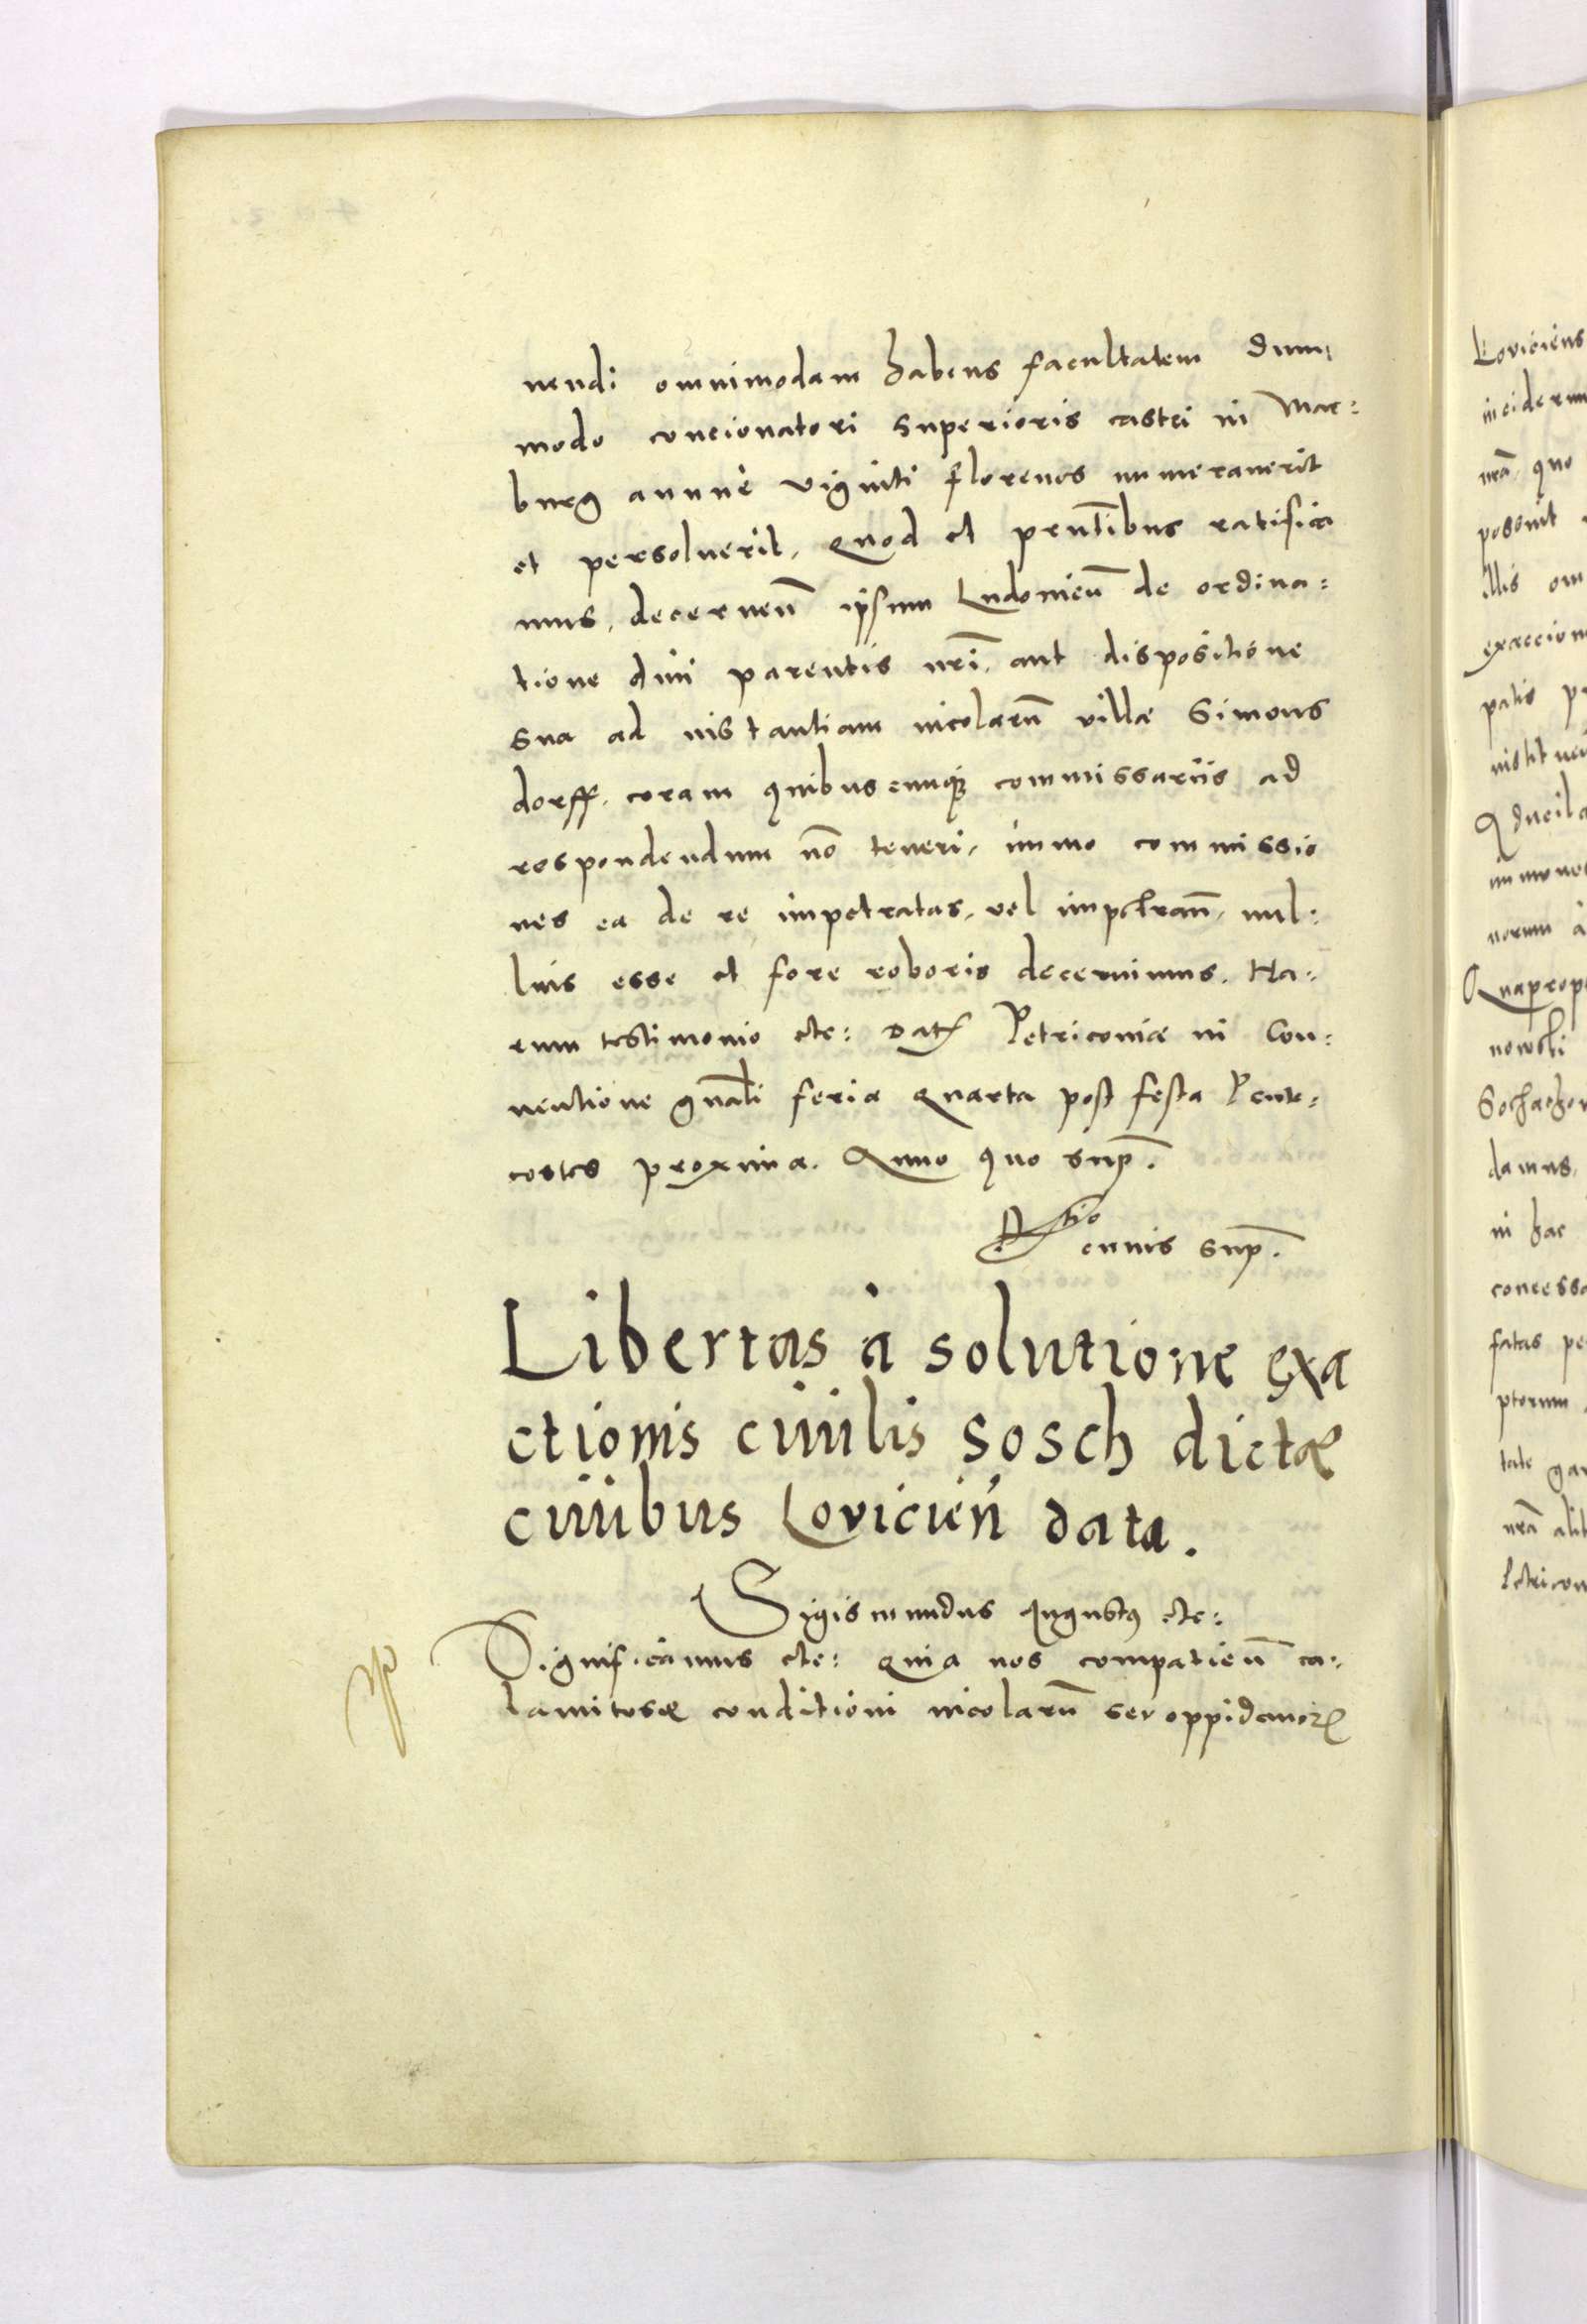 nendi omnimodam habens facultatem dum
modo concionatori superioris castri in Mar=
burg annuè viginti florenos numeraverit
et persolverit, quod et pr̃ntibus ratifica
mus, decerneñ ipsum Ludovicũ de ordina=
tione divi parentis nr̃i, aut dispositione
sua ad instantiam incolarũ villæ Simons
dorff, coram quibuscunq; commissariis ad
respondendum nõ teneri, immo commissio
nes ea de re impetratas, vel impetrañ, nul=
lius esse et fore roboris decernimus. Ha=
rum testimonio etc: Dat Petricoviæ in Con=
ventione gñali feria quarta post festa Pente=
costes proxima. Anno quo sup̃.
Rtio
cuius sup̃.
Libertas à solutione exa
ctionis civilis sosch dictæ
civibus Lovicień data.
Sigismundus Augustus etc:
Significamus etc: quia nos compatieñ ca=
lamitosæ conditioni incolarũ seu oppidanorꝝ
Loviciens
inciderun
nrã, quo
posuit
illis om
exaccion
patis pr
instituen
Aducila
immune
norum à
Quaprop
nowski
Sochaczov
damus,
in hac
concessa
fatas pe
ptorum
tate gau
nrã alit
Petricov